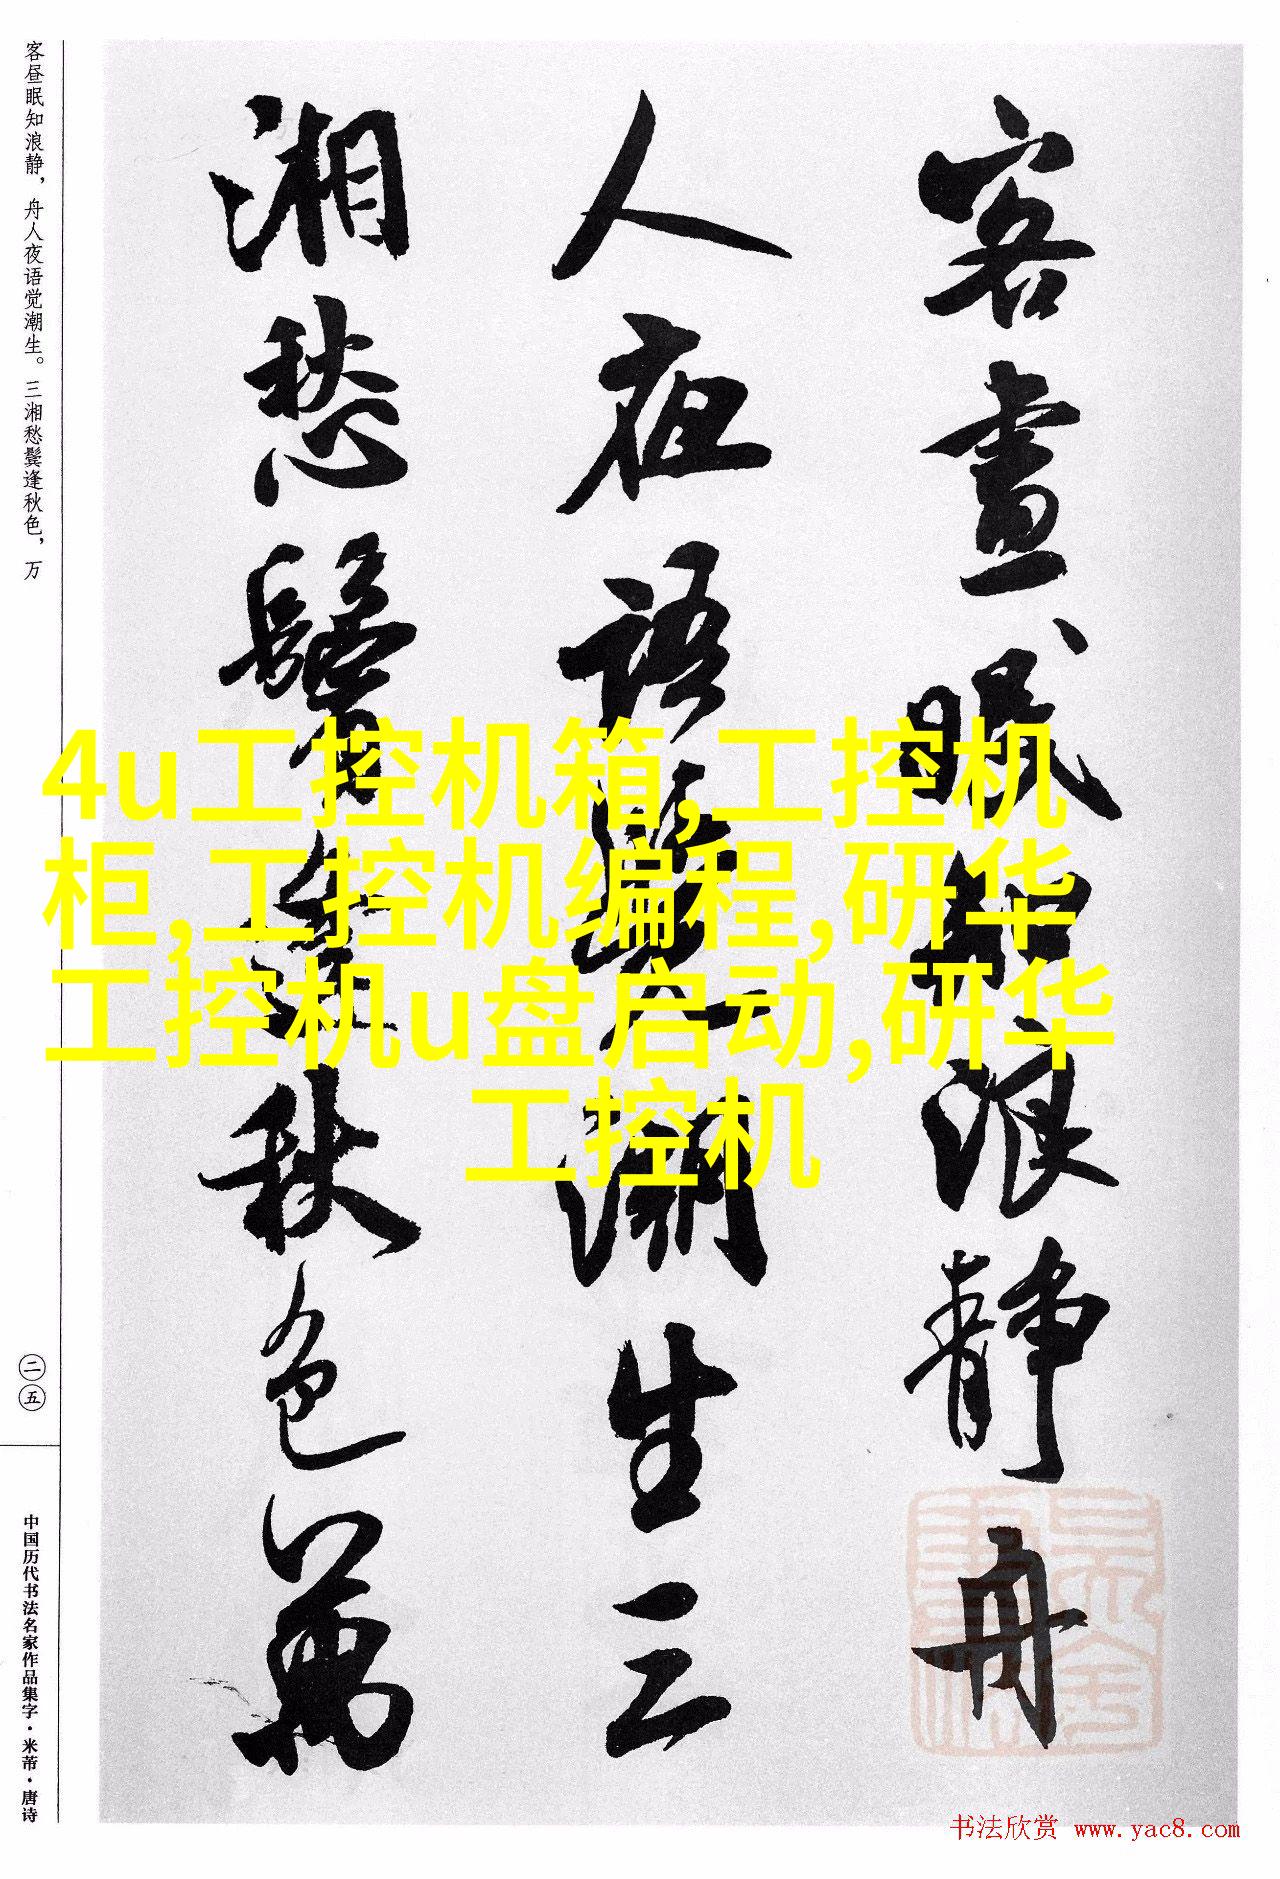 客昼眠知浪静，舟人夜语觉潮生。三湘愁鬓逢秋色，万
客晝眠知浪静舟
人夜语覺潮生三
湘愁鬢逢秋色萬
4u工控机箱,工控机
柜,工控机编程,研华
工控机u盘启动,研华
工控机
二五
中国历代书法名家作品集字·米芾·唐诗
书法欣赏 www.yac8.com